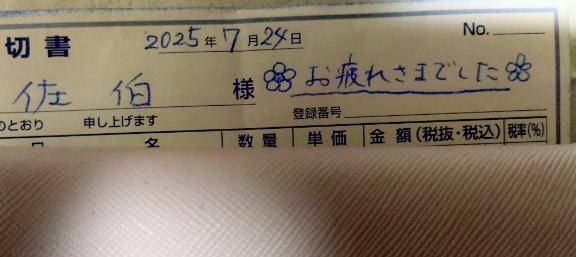 切書 2025年7月24日 No.
佐伯 様 お疲れさまでした
のとおり 申し上げます 登録番号
名 数量 単価 金額(税抜・税込) 税率(%)